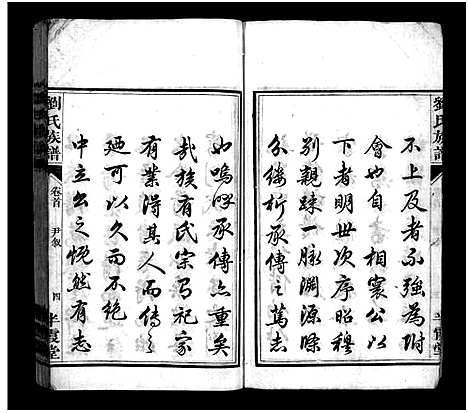 劉氏族譜
不上及者不強為附
會也自
相寰公以
下者明世次序昭穆
別親疎一脉淵源條
分縷析承傳之篤志
如嗚呼承傳亦重矣
哉族有氏宗有祀家
有業得其人而傳之
廼可以久而不絶
中立公之慨然有志
劉氏族譜
卷首
尹敘
四
半霞堂